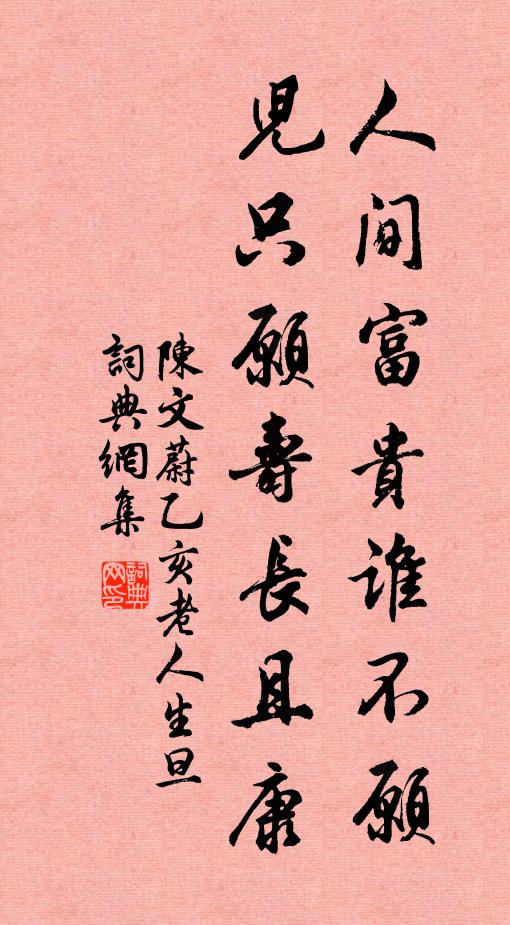 人间富貴誰不願
児只願壽長且康
陳文蔚乙亥老人生旦
詞典網集
詞典網印